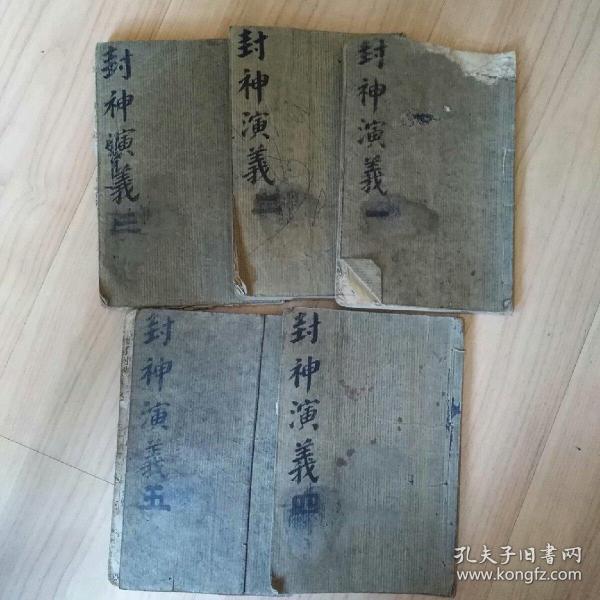 封神演義三
封神演義二
封神演義一
封神演義五
封神演義四
孔夫子旧書网
www.kongfz.com